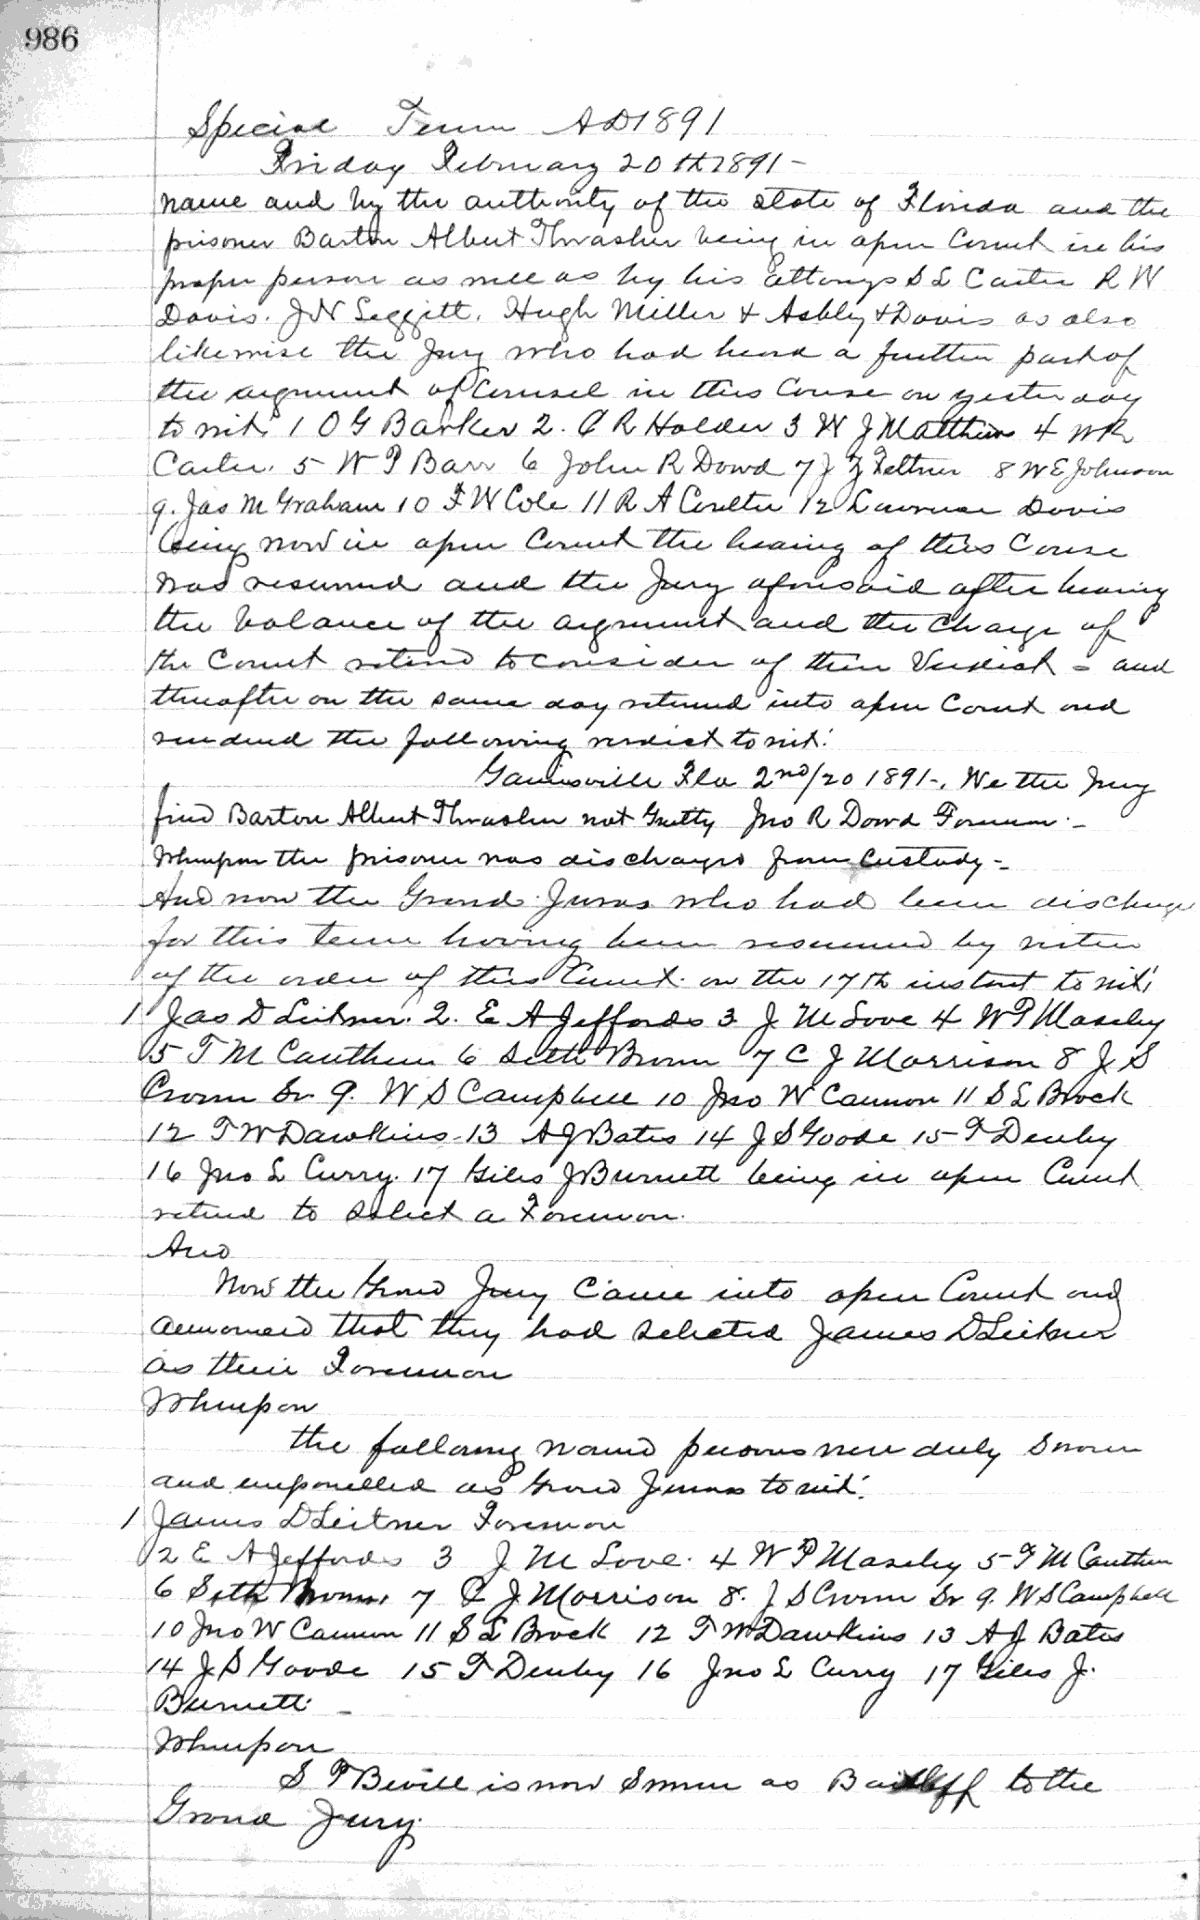 986
Special Term AD1891
Friday February 20th 1891-
name and by the authority of the State of Florida and the
prisoner Barton Albert Thrasher being in open Court in his
proper person as well as by his Attonys S L Carter R W
Davis. J N Leggitt. Hugh Miller & Ashby & Davis as also
likewise the Jury who had heard a further part of
the argument of Counsel in this Cause on yesterday
to wit: 1 O G Barker 2. C R Holder 3 W J Matthews 4 W R
Carter. 5 W P Barr 6 John R Dowd 7 J Z Feltner 8 W E Johnson
9. Jas M Graham 10 F W Cole 11 R A Coulter 12 Lawrence Davis
being now in open Court the hearing of this Cause
was resumed and the Jury aforesaid after hearing
the balance of the argument and the Charge of
the Court retired to consider of their Verdict - and
thereafter on the same day returned into open Court and
rendered the following verdict to wit:
Gainesville Fla 2nd/20 1891-. We the Jury
find Barton Albert Thrasher not Guilty Jno R Dowd Foreman.-
Whereupon the prisoner was discharged from Custody-
And now the Grand Juros who had been discharge
for this term having been resumed by
of the order of this Court. on the 17th instant to wit:
1 Jas D Leitner. 2. E A Jeffords 3 J M Love 4 W P Maseley
5 T M Cauthen 6 Seth Brown 7 C J Morrison 8 J S
Crown Sr 9. W S Campbell 10 Jno W Cannon 11 S L Brock
12 T W Dawkins-13 A J Bates 14 J S Goode 15 T Denby
16 Jno L Curry. 17 Giles J Burnett being in open Court
retired to Select a Foreman.
And
Now the Grand Jury Came into open Court and
announced that they had Selected James D Leitner
as their Foreman
Whereupon
the following named persons were duly Sworn
and empanelled as Grand Juros to wit:
1 James D Leitner Foreman
2 E A Jeffords 3 J M Love. 4 W P Maseley 5 T M Cauthen
6 Seth Brown, 7 C J Morrison 8. J S Crown Sr 9. W S Campbell
10 Jno W Cannon 11 S L Brock 12 T W Dawkins 13 A J Bates
14 J S Goode 15 T Denby 16 Jno L Curry 17 Giles J.
Burnett. -
Whereupon
S P Bevill is now Sworn as Bailiff to the
Grand Jury.